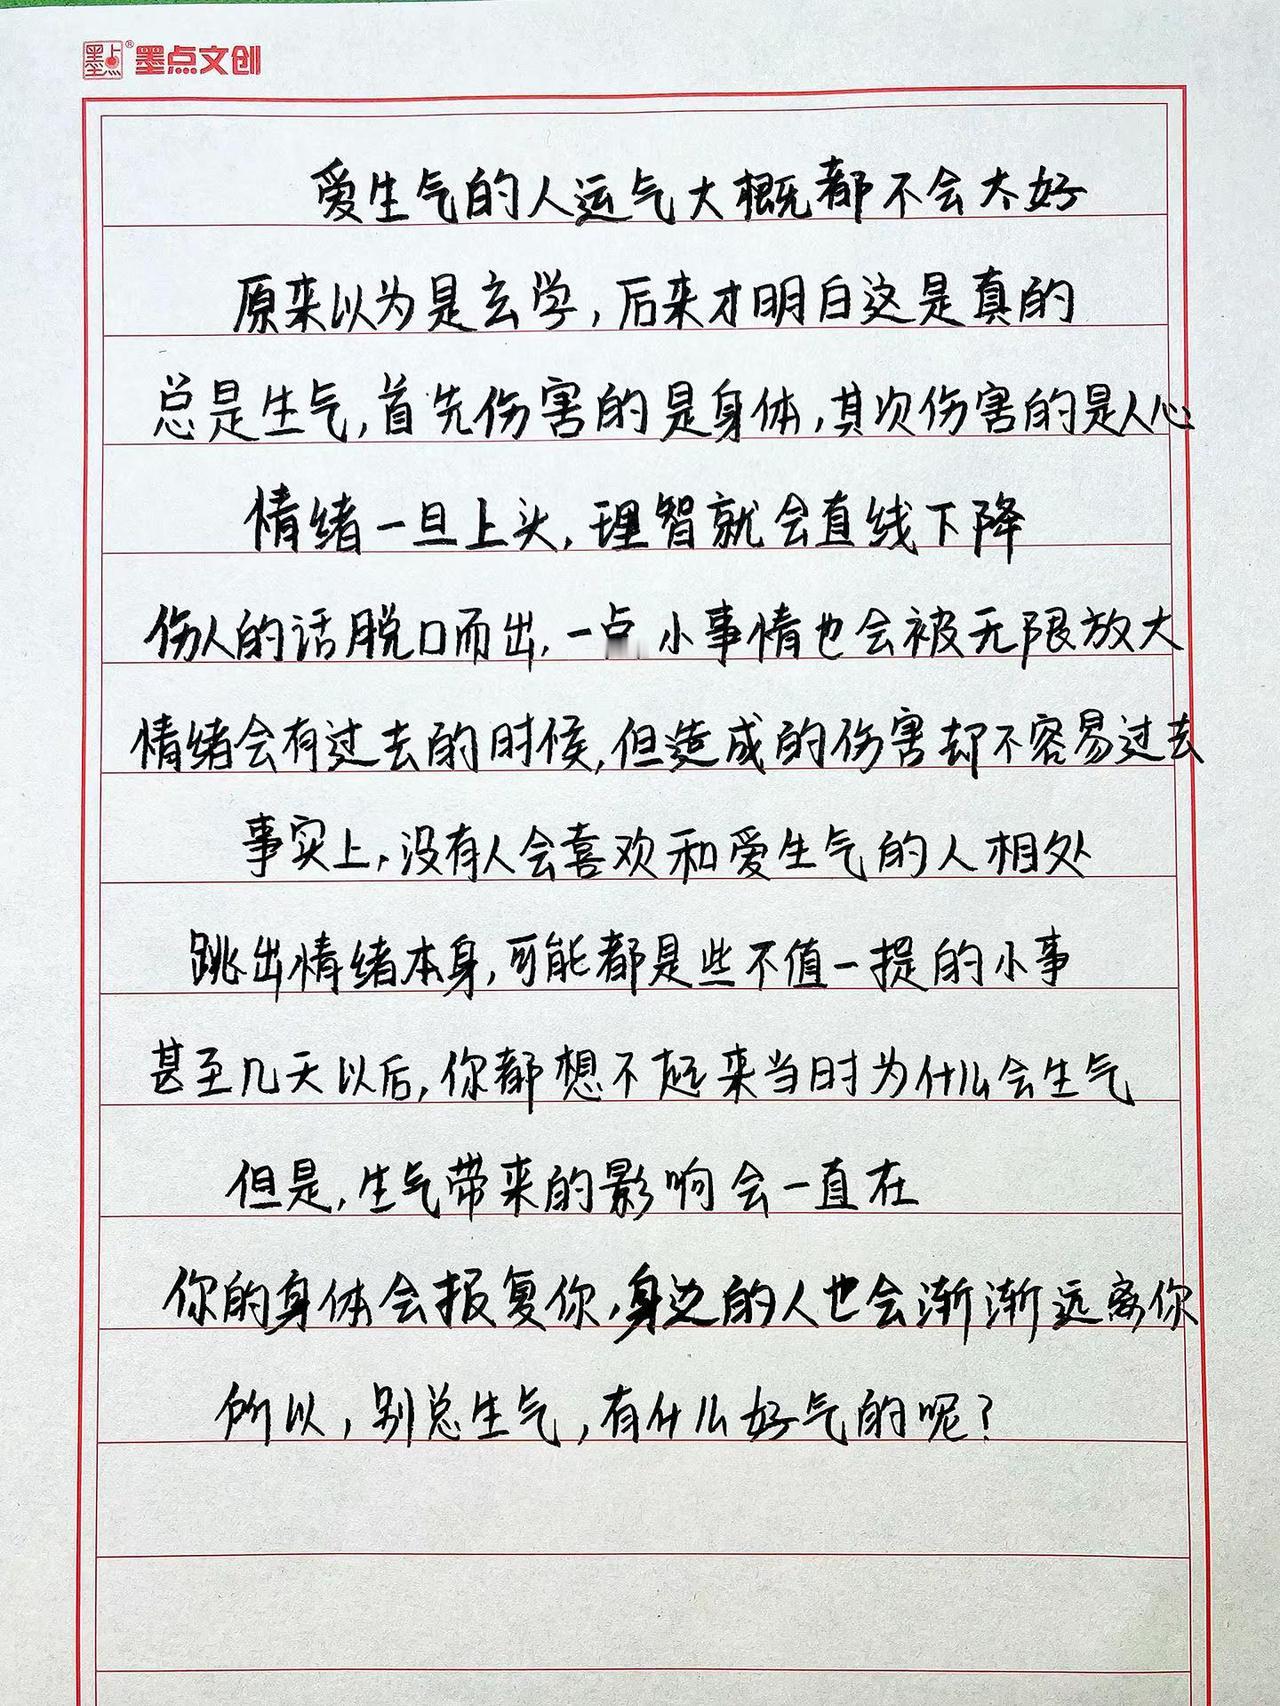 墨点® 墨点文创
爱生气的人运气大概都不会太好
原来以为是玄学,后来才明白这是真的
总是生气,首先伤害的是身体,其次伤害的是人心
情绪一旦上头,理智就会直线下降
伤人的话脱口而出,一点小事情也会被无限放大
情绪会有过去的时候,但造成的伤害却不容易过去
事实上,没有人会喜欢和爱生气的人相处
跳出情绪本身,可能都是些不值一提的小事
甚至几天以后,你都想不起来当时为什么会生气
但是,生气带来的影响会一直在
你的身体会报复你,身边的人也会渐渐远离你
所以,别总生气,有什么好气的呢?